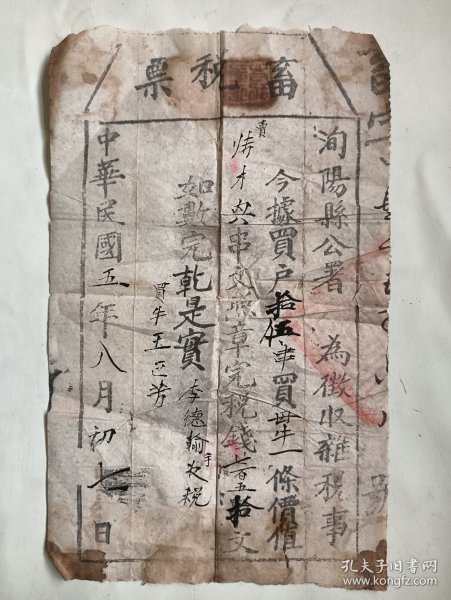 畜税票
洵陽縣公署 為徵收雜税事
今據買户拾伍串買毋牛一條價值
賣
串文照章完税錢 百五拾文
如數完乾是實 李德翰 收税
手
買牛王正芳
中華民國五年八月初七日
孔夫子旧书网
www.kongfz.com